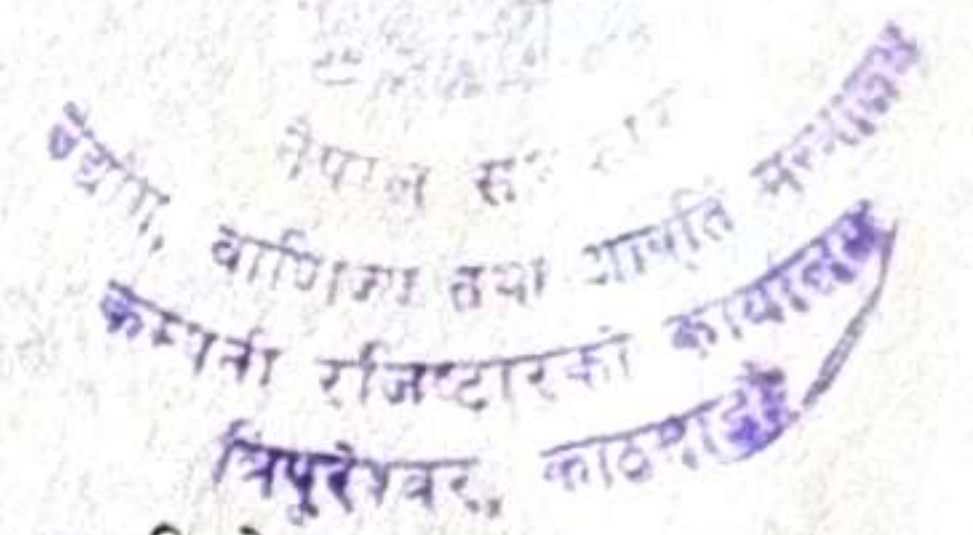 नेपाल सरकार
उद्योग, वाणिज्य तथा आपूर्ति मन्त्रालय
कम्पनी रजिष्टारको कार्यालय
त्रिपुरेश्वर, काठमाडौं